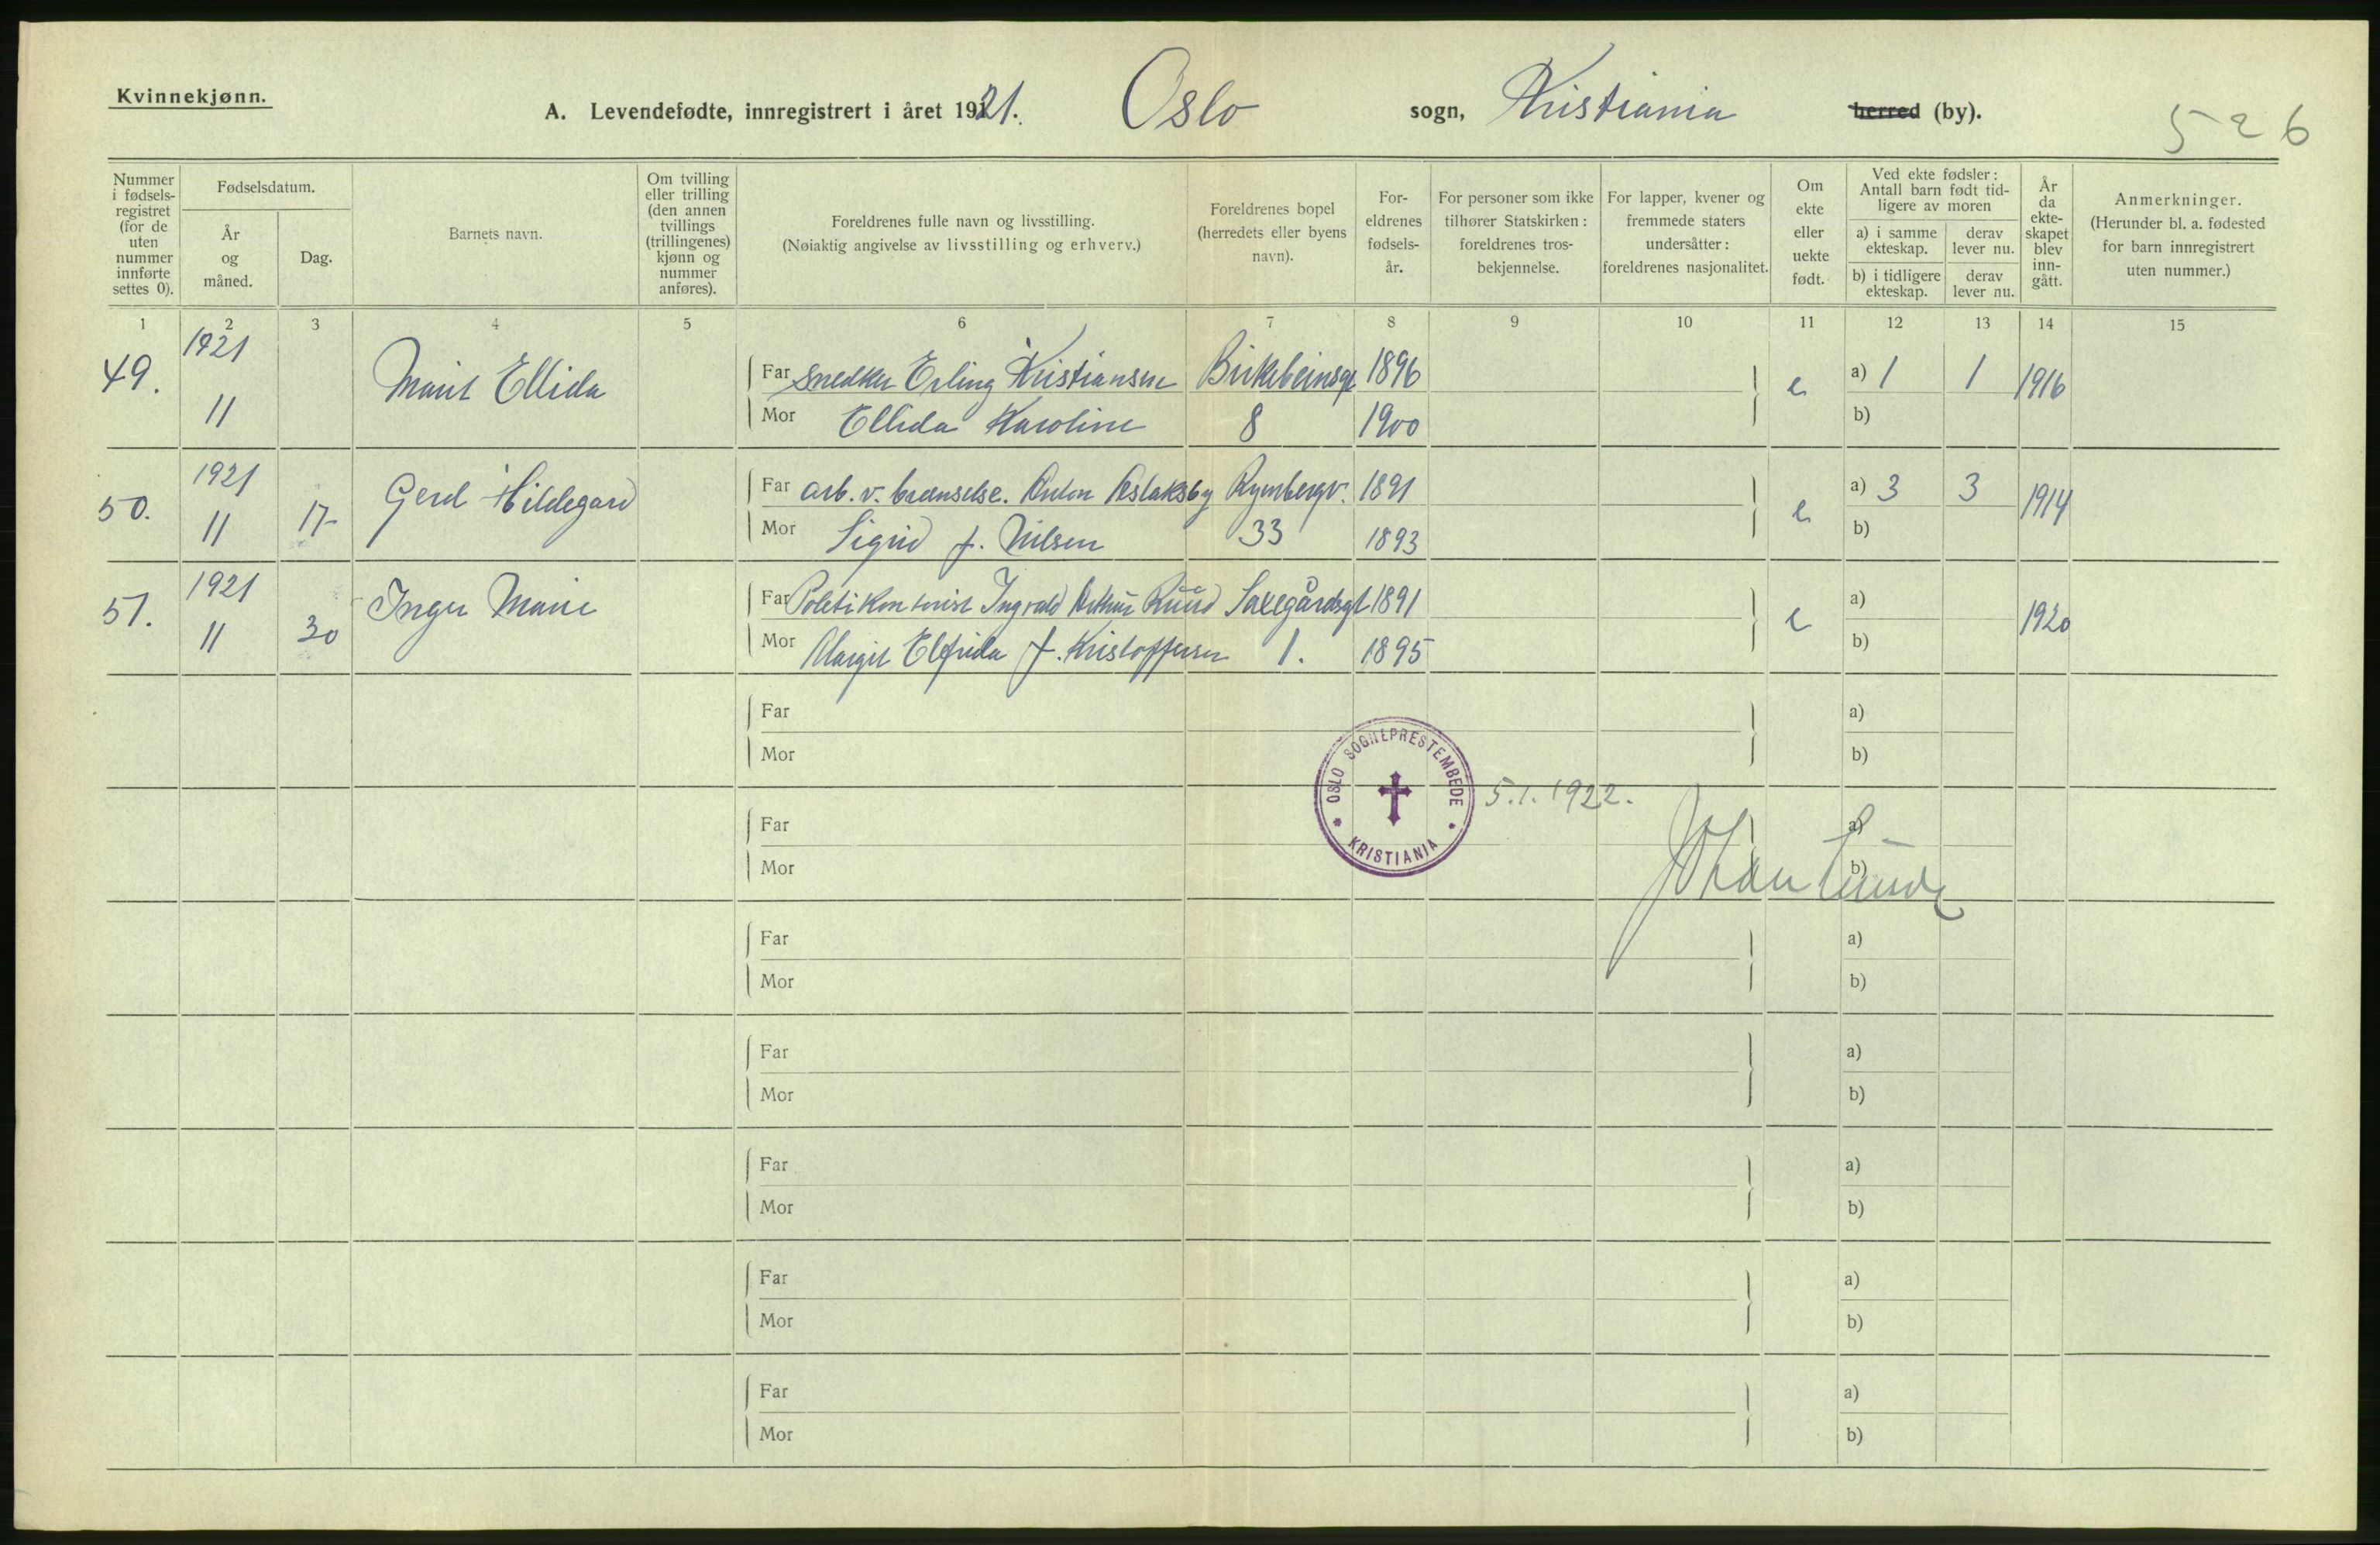 Kvinnekjønn.
A. Levendefødte, innregistrert i året 1921. Oslo sogn, Kristiania herred (by).
526
Nummer i fødsels-registret (for de uten nummer innførte settes 0).
Fødselsdatum.
År og måned.
Dag.
Barnets navn.
Om tvilling eller trilling (den annen tvillings (trillingenes) kjønn og nummer anføres).
Foreldrenes fulle navn og livsstilling.
(Nøiaktig angivelse av livsstilling og erhverv.)
Foreldrenes bopel (herredets eller byens navn).
For-eldrenes fødsels-år.
For personer som ikke tilhører Statskirken: foreldrenes tros-bekjennelse.
For lapper, kvener og fremmede staters undersåtter: foreldrenes nasjonalitet.
Om ekte eller uekte født.
Ved ekte fødsler: Antall barn født tid-ligere av moren
a) i samme ekteskap.
derav lever nu.
b) i tidligere ekteskap.
derav lever nu.
År da ekte-skapet blev inn-gått.
Anmerkninger.
(Herunder bl. a. fødested for barn innregistrert uten nummer.)
1 2 3 4 5 6 7 8 9 10 11 12 13 14 15
49. 1921 11 Marit Ellida
Far Snedker Erling Kristiansen Birkebeinsgt 1896 e a) 1 1 1916
Mor Ellida Karoline 8 1900 b)
50. 1921 11 17 Gerd Hildegard
Far arb. v. brænselse. Anton Aslaksby Rymbergv. 1891 e a) 3 3 1914
Mor Sigrid f. Nilsen 33 1893 b)
51. 1921 11 30 Inger Marie
Far Politikontorist Ingvald Arthur Ruud Saxegårdsgt 1891 e a) 1920
Mor Margit Elfrida f. Kristoffersen 1. 1895 b)
Far a)
Mor b)
OSLO SOGNEPRESTEMBEDE
KRISTIANIA
5.1.1922.
Far a)
Johan Lunde
Mor b)
Far a)
Mor b)
Far a)
Mor b)
Far a)
Mor b)
Far a)
Mor b)
Far a)
Mor b)